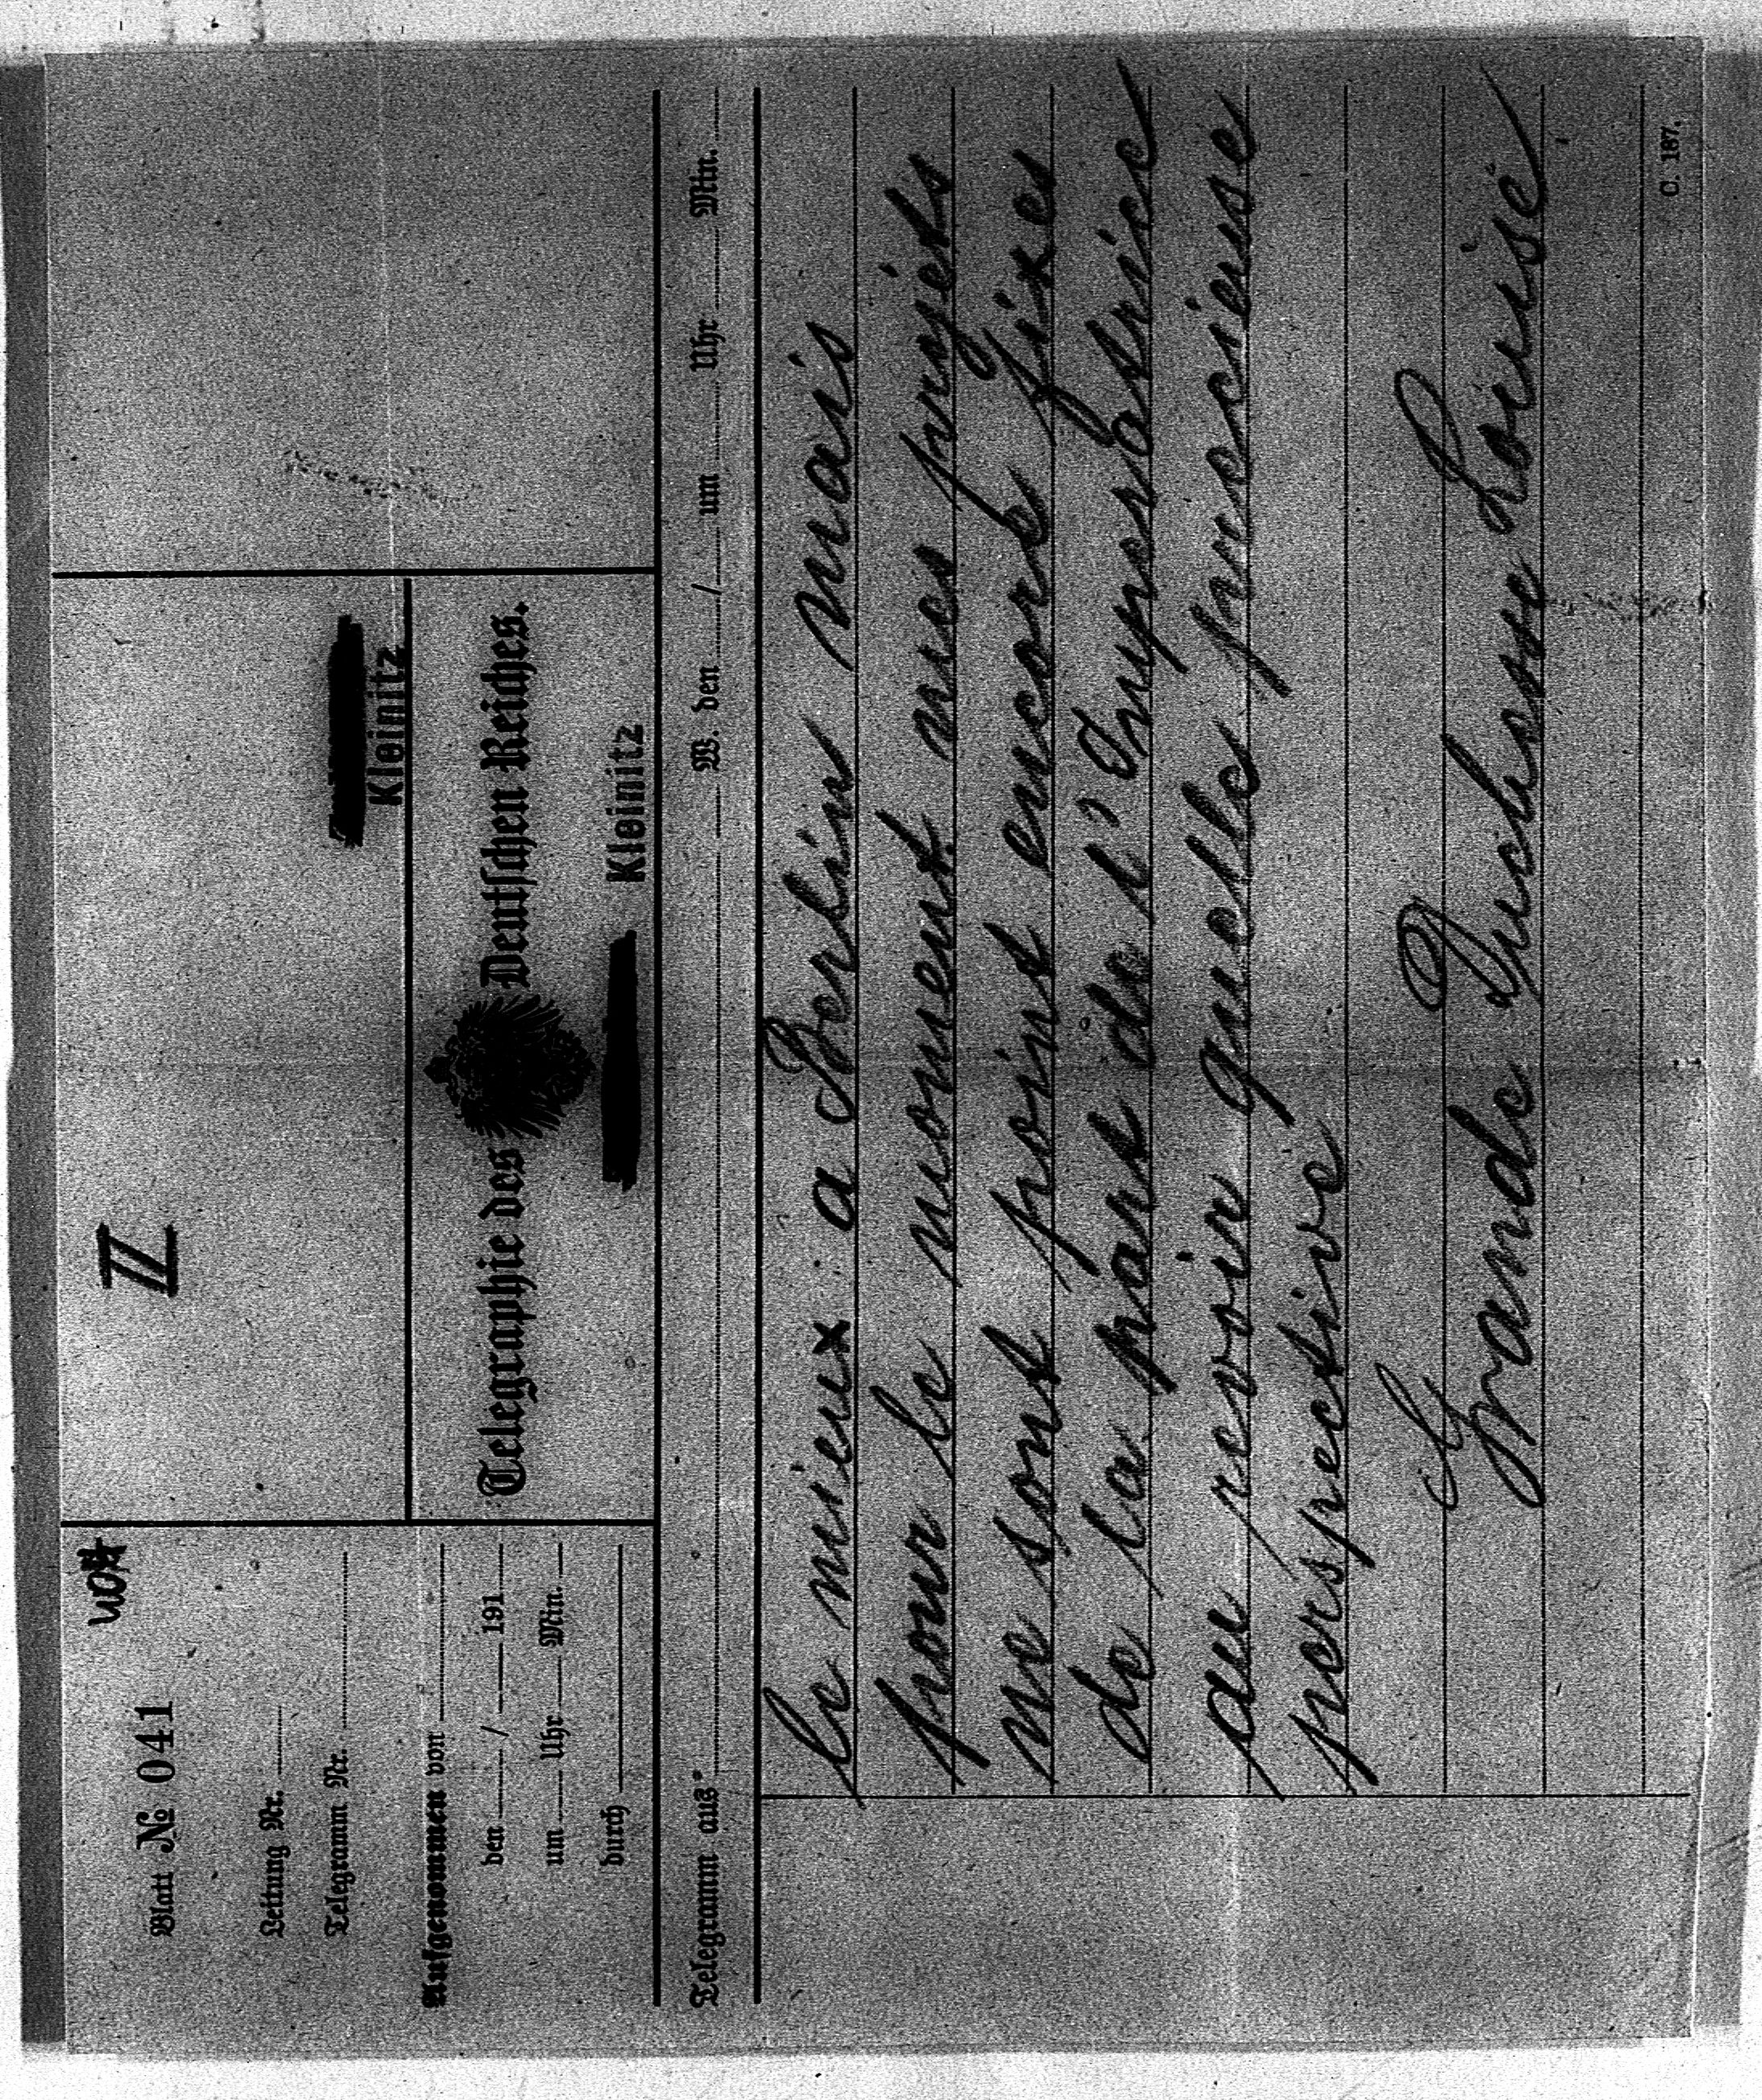 II
Blatt № 041
Leitung Nr.
Telegramm Nr.
Kleinitz
Aufgenommen von
den / 191
um Uhr Min.
durch
Telegraphie des Deutschen Reiches.
Kleinitz
Telegramm aus W. den / um Uhr Min.
le mieux a Berlin mais
pour le moment mes projets
ne sont point encore fixes
de la part de l'Imperatrice
au revoir quelle precieuse
perspective
Grande Duchesse Louise
C. 187.